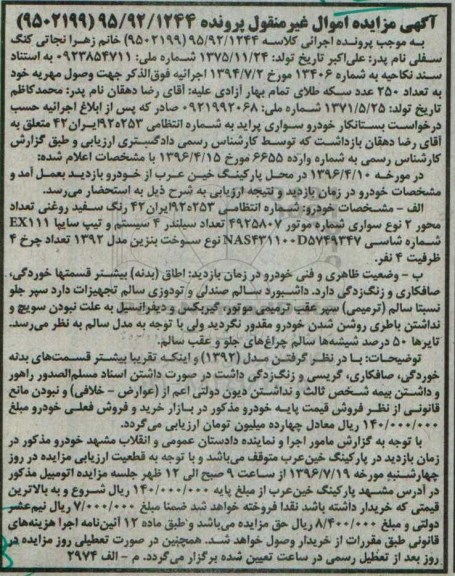 آگهی مزایده اموال غیرمنقول پرونده ۹۵/۹۲/۱۲۴۴ (۹۵۰۲۱۹۹)
به موجب پرونده اجرائی کلاسه ۹۵/۹۲/۱۲۴۴ (۹۵۰۲۱۹۹) خانم زهرا نجاتی کنگ
سفلی نام پدر: علی‌اکبر تاریخ تولد: ۱۳۷۵/۱۱/۲۴ شماره ملی: ۰۹۲۳۸۵۴۷۱۱ به استناد
سند نکاحیه به شماره ۱۳۴۰۶ مورخ ۱۳۹۴/۷/۲ اجرائیه فوق‌الذکر جهت وصول مهریه خود
به تعداد ۲۵۰ عدد سکه طلای تمام بهار آزادی علیه: آقای رضا دهقان نام پدر: محمدکاظم
تاریخ تولد: ۱۳۷۱/۵/۲۵ شماره ملی: ۰۹۲۱۹۹۲۰۶۸ صادر که پس از ابلاغ اجرائیه حسب
درخواست بستانکار خودرو سواری پراید به شماره انتظامی ۲۵۳ه۹۲ایران۴۲ متعلق به
آقای رضا دهقان بازداشت که توسط کارشناس رسمی دادگستری ارزیابی و طبق گزارش
کارشناس رسمی به شماره وارده ۶۶۵۵ مورخ ۱۳۹۶/۴/۱۵ با مشخصات اعلام شده:
در مورخه ۱۳۹۶/۴/۱۰ در محل پارکینگ خین عرب از خودرو بازدید بعمل آمد و
مشخصات خودرو در زمان بازدید و نتیجه ارزیابی به شرح ذیل به استحضار می‌رسد.
الف – مشخصات خودرو: شماره انتظامی ۲۵۳ه۹۲ایران۴۲ رنگ سفید روغنی تعداد
محور ۲ نوع سواری شماره موتور ۴۹۲۵۸۰۷ تعداد سیلندر ۴ سیستم و تیپ سایپا EX111
شماره شاسی NAS۴۳۱۱۰۰D۵۷۴۹۳۴۷ نوع سوخت بنزین مدل ۱۳۹۲ تعداد چرخ ۴
ظرفیت ۴ نفر.
ب – وضعیت ظاهری و فنی خودرو در زمان بازدید: اطاق (بدنه) بیشتر قسمتها خوردگی،
صافکاری و زنگ‌زدگی دارد. داشبورد سالم صندلی و تودوزی سالم تجهیزات دارد سپر جلو
نسبتا سالم (ترمیمی) سپر عقب ترمیمی موتور، گیربکس و دیفرانسیل به علت نبودن سویچ و
نداشتن باطری روشن شدن خودرو مقدور نگردید ولی با توجه به مدل سالم به نظر می‌رسد.
تایرها ۵۰ درصد شیشه‌ها سالم چراغ‌های جلو و عقب سالم.
توضیحات: با در نظر گرفتن مدل (۱۳۹۲) و اینکه تقریبا بیشتر قسمت‌های بدنه
خوردگی، صافکاری، گریسی و زنگ‌زدگی داشت در صورت داشتن اسناد مسلم‌الصدور راهور
و داشتن بیمه شخص ثالث و نداشتن دیون دولتی اعم از (عوارض – خلافی) و نبودن مانع
قانونی از نظر فروش قیمت پایه خودرو مذکور در بازار خرید و فروش فعلی خودرو مبلغ
۱۴۰/۰۰۰/۰۰۰ ریال معادل چهارده میلیون تومان ارزیابی می‌گردد.
با توجه به گزارش مامور اجرا و نماینده دادستان عمومی و انقلاب مشهد خودرو مذکور در
زمان بازدید در پارکینگ خین‌عرب متوقف می‌باشد و با توجه به قطعیت ارزیابی مزایده در روز
چهارشنبه مورخه ۱۳۹۶/۷/۱۹ از ساعت ۹ صبح الی ۱۲ ظهر جلسه مزایده اتومبیل مذکور
در آدرس مشهد پارکینگ خین‌عرب از مبلغ پایه ۱۴۰/۰۰۰/۰۰۰ ریال شروع و به بالاترین
قیمتی که خریدار داشته باشد نقدا فروخته خواهد شد ضمنا مبلغ ۷/۰۰۰/۰۰۰ ریال نیم‌عشر
دولتی و مبلغ ۸/۴۰۰/۰۰۰ ریال حق مزایده می‌باشد و طبق ماده ۱۲ آئین‌نامه اجرا هزینه‌های
قانونی طبق مقررات از خریدار وصول خواهد شد. همچنین در صورت تعطیلی روز مزایده در
روز بعد از تعطیل رسمی در ساعت تعیین شده برگزار می‌گردد. م – الف ۲۹۷۴